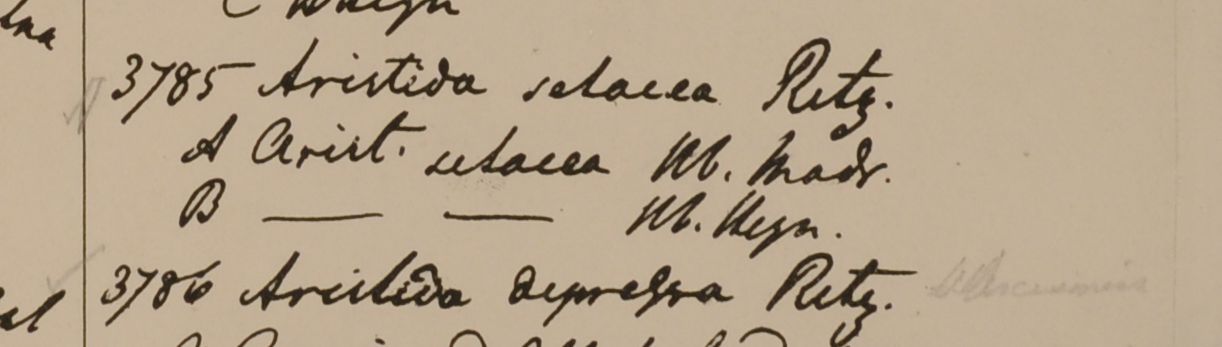 C Heyn
3785 Aristida setacea Retz.
A Arist. setacea Hb. Madr.
B — — Hb. Heyn.
3786 Aristida depressa Retz.